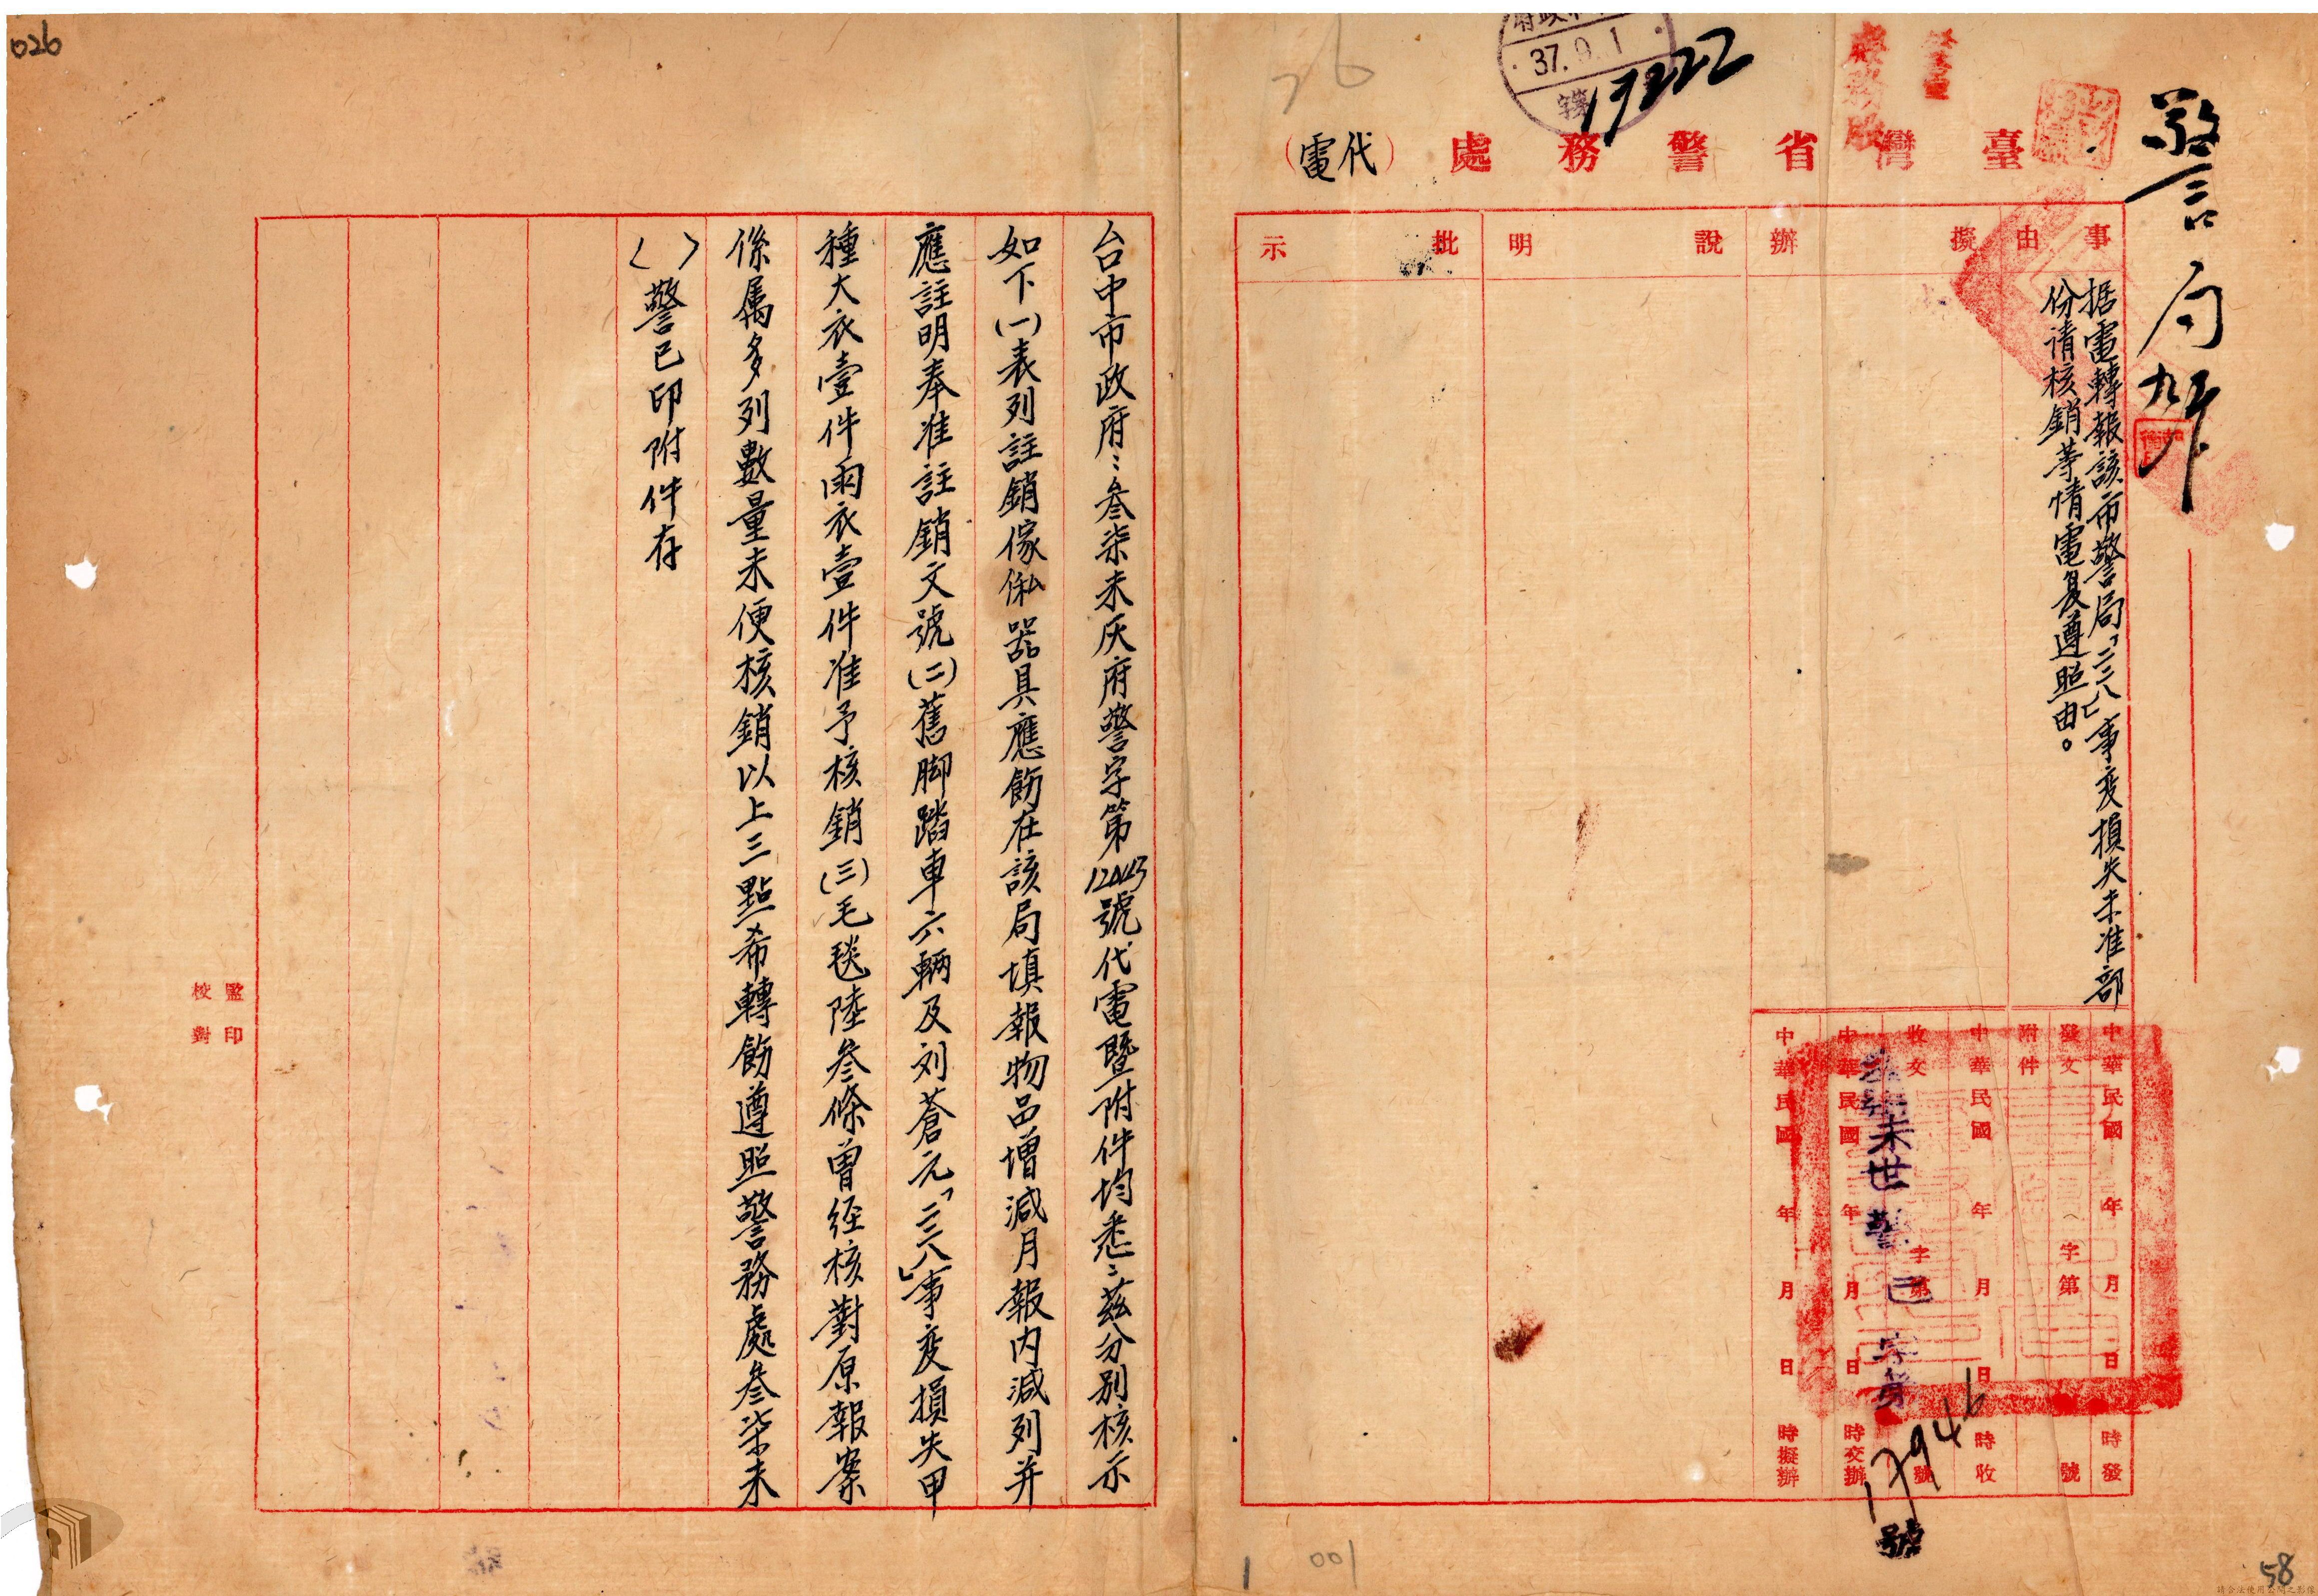 026
37.9.1
17222
警局
臺灣省警務處（代電）
事由
擬辦
說明
批示
据電轉報該市警局「二二八」事変損失未准部
份请核銷等情電复遵照由。
中華民國 年 月 日 時發
發文 字第 號
附件
中華民國 年 月 日 時收
收文 字第 號
中華民國 年 月 日 時交辦
中華民國 年 月 日 時擬辦
未世警己字第17946號
台中市政府：叁柒未灰府警字第12443號代電暨附件均悉：茲分別核示
如下(一)表列註銷傢俬器具應飭在該局填報物品增減月報内減列并
應註明奉准註銷文號(二)舊脚踏車六輛及刘蒼元「二二八」事変損失甲
種大衣壹件雨衣壹件准予核銷(三)毛毯陸叁條曾経核對原報案
係属多列數量未便核銷以上三點希轉飭遵照警務處叁柒未
（ ）警己印附件存
監印
校對
1
001
58
請合法使用公開之影像